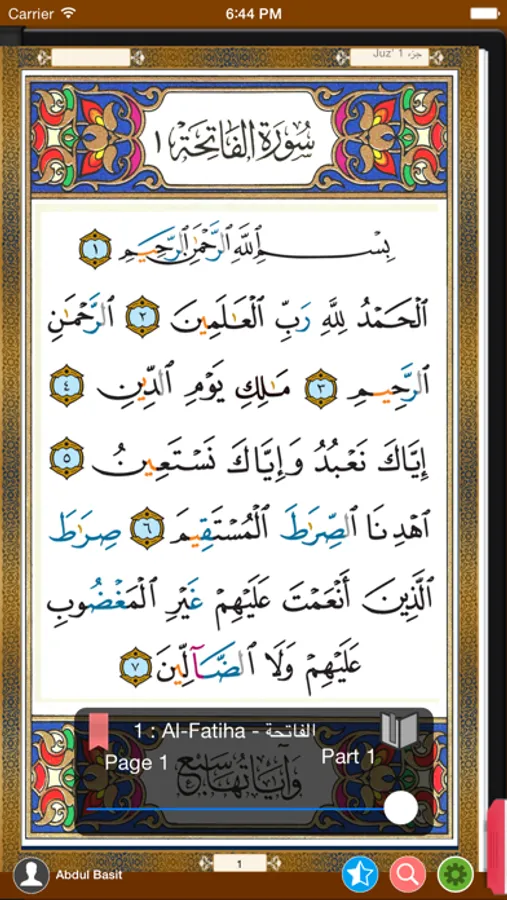 Carrier 6:44 PM
Juz' 1 جزء
سُورَةُ الفَاتِحَةِ ١
بِسْمِ ٱللَّهِ ٱلرَّحْمَٰنِ ٱلرَّحِيمِ ١
ٱلْحَمْدُ لِلَّهِ رَبِّ ٱلْعَٰلَمِينَ ٢ ٱلرَّحْمَٰنِ
ٱلرَّحِيمِ ٣ مَٰلِكِ يَوْمِ ٱلدِّينِ ٤
إِيَّاكَ نَعْبُدُ وَإِيَّاكَ نَسْتَعِينُ ٥
ٱهْدِنَا ٱلصِّرَٰطَ ٱلْمُسْتَقِيمَ ٦ صِرَٰطَ
ٱلَّذِينَ أَنْعَمْتَ عَلَيْهِمْ غَيْرِ ٱلْمَغْضُوبِ
عَلَيْهِمْ وَلَا ٱلضَّآلِّينَ ٧
1 : Al-Fatiha - الفاتحة
Page 1 Part 1
وَآيَاتُهَا سَبْعٌ
1
Abdul Basit